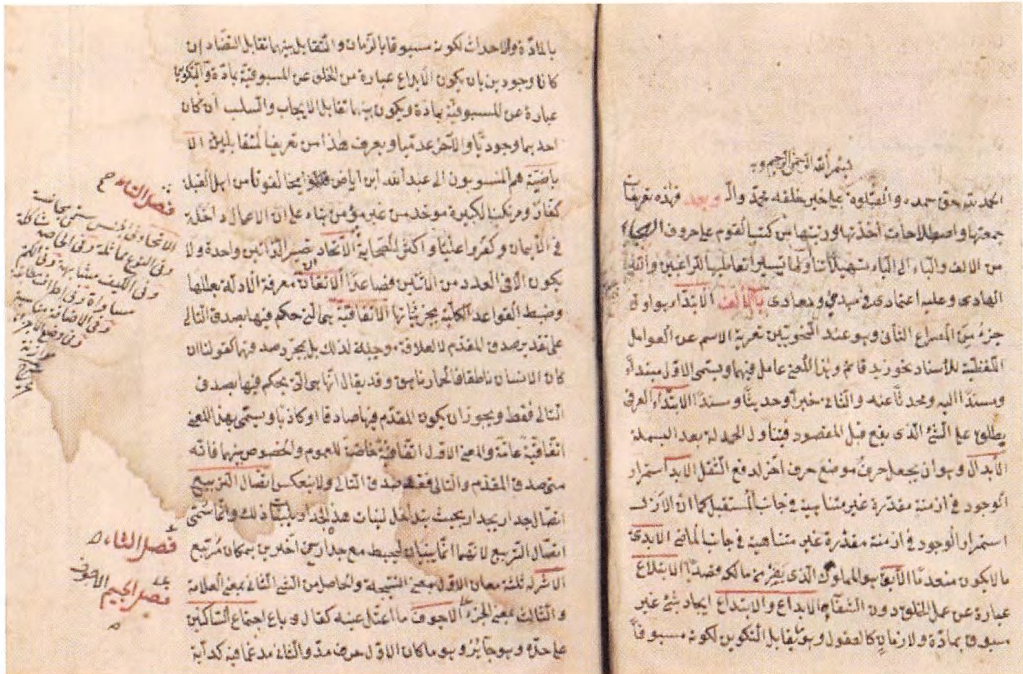 بسم الله الرحمن الرحيم وبه
الحمد لله حق حمده والصلوة على خير خلقه محمد وآله وبعد فهذه تعريفات
جمعتها واصطلاحات اخذتها ورتبتها من كتب القوم على حروف الهجاء
من الالف والباء الى الياء تسهيلا تناولها تيسيرا تعاطيها للراغبين والله
الهادى وعليه اعتمادى فى مبدئى ومعادى باب الالف الابتداء هو اول
جزء من المصراع الثانى وهو عند النحويين تعرية الاسم عن العوامل
اللفظية للاسناد نحو زيد قائم وهذا المعنى عامل فيهما ويسمى الاول مبتداء
ومسندا اليه ومحدثا عنه والثانى خبرا وحديثا ومسندا الابتداء العرفى
يطلق على الشئ الذى يقع قبل المقصود فيتناول الحمدلة بعد البسملة
الابدال وهو ان يجعل حرف موضع حرف آخر لدفع الثقل الابد استمرار
الوجود فى ازمنة مقدرة غير متناهية فى جانب المستقبل كما ان الازل
استمرار الوجود فى ازمنة مقدرة غير متناهية فى جانب الماضى الابدى
ما لا يكون منعدما الآبق هو المملوك الذى يفر من مالكه قصدا الابتلاع
عبارة عن عمل الحلق دون الشفاه الابداع والابتداع ايجاد شئ غير
مسبوق بمادة ولا زمان كالعقول وهو يقابل التكوين لكونه مسبوقا
بالمادة والاحداث لكونه مسبوقا بالزمان والتقابل بينهما تقابل التضاد ان
كانا وجودين بان يكون الابداع عبارة من الخلق عن المسبوقية بمادة والتكوين
عبارة عن المسبوقية بمادة ويكون بينهما تقابل الايجاب والسلب ان كان
احدهما وجوديا والآخر عدميا ويعرف هذا من تعريف المتقابلين الا
باضية هم المنسوبون الى عبد الله ابن اباض قالوا مخالفونا من اهل القبلة
كفار ومرتكب الكبيرة موحد من غير مؤمن بناء على ان الاعمال داخلة
فى الايمان وكفروا عليا واكثر الصحابة الاتحاد تصير الذاتين واحدة ولا
يكون الا فى العدد من الاثنين فصاعدا الاتقان معرفة الادلة بعللها
وضبط القواعد الكلية بجزئياتها الاتفاقية هى التى حكم فيها بصدق التالى
على تقدير صدق المقدم لا لعلاقة وجبلة لذلك بل بمجرد صدقهما كقولنا ان
كان الانسان ناطقا فالحمار ناهق وقد يقال انها هى التى يحكم فيها بصدق
التالى فقط ويجوز ان يكون المقدم فيها صادقا او كاذبا ويسمى بهذا المعنى
اتفاقية عامة والمعنى الاول اتفاقية خاصة للعموم والخصوص بينهما فانه
متى صدق المقدم والتالى فقد صدق التالى ولا ينعكس اتصال التربيع
اتصال جدار بجدار بحيث يتداخل لبنات هذا الجدار بلبنات ذلك وانما سمى
اتصال التربيع لانهما انما يبنيان ليحيط مع جدارين آخرين بمكان مربع
الاثر له ثلثة معان الاول بمعنى النتيجة والحاصل من الشئ الثانى بمعنى العلامة
والثالث بمعنى الجزء الاجوف ما اعتل عينه كقال وباع اجتماع الساكنين
على حده وهو جائز وهو ما كان الاول حرف مد والثانى مدغما فيه كدابة
فصل التاء
الاتحاد فى الجنس يسمى مجانسة
وفى النوع مماثلة وفى الخاصة مشاكلة
وفى الكيف مشابهة وفى الكم
مساواة وفى الاطراف مطابقة
وفى الاضافة مناسبة
وفى وضع الاجزاء
موازنة
فصل الثاء
فصل الجيم